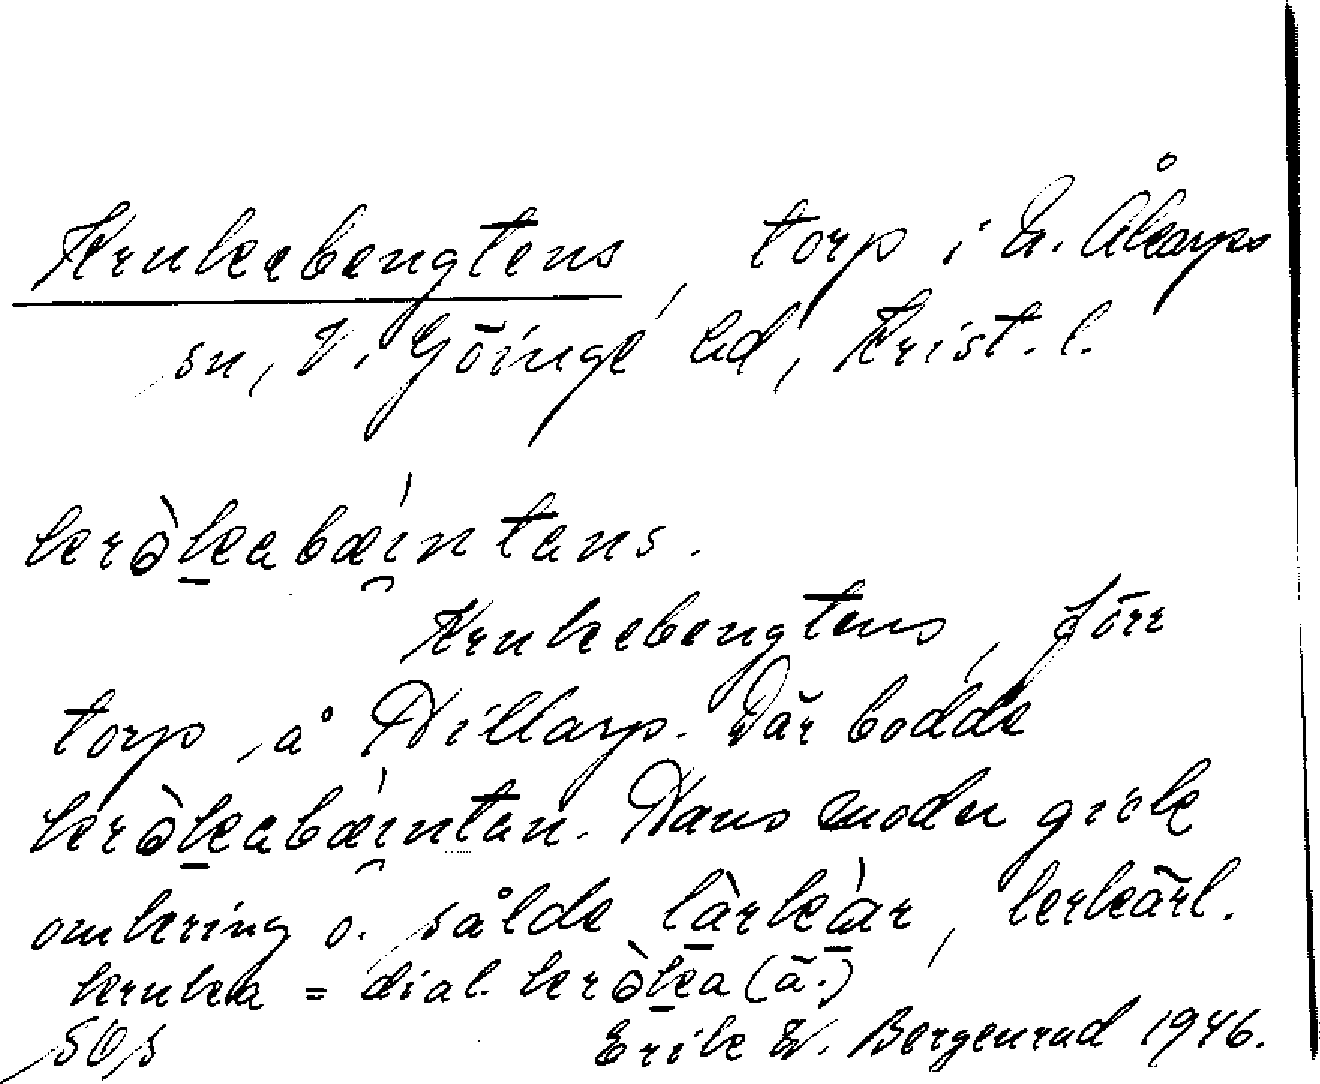 Krukebengtens, torp i N. Åkarps
sn, V. Göinge hd, Krist. l.
krò̱kabæi̯ntans.
Krukebengtens, förr
torp å Hillarp. Där bodde
krò̱kabæi̯ntan. Hans moder gick
omkring o. sålde làrkár, lerkärl.
kruka = dial. krò̱ka (ä.)
Erik W. Bergenrud 1946.